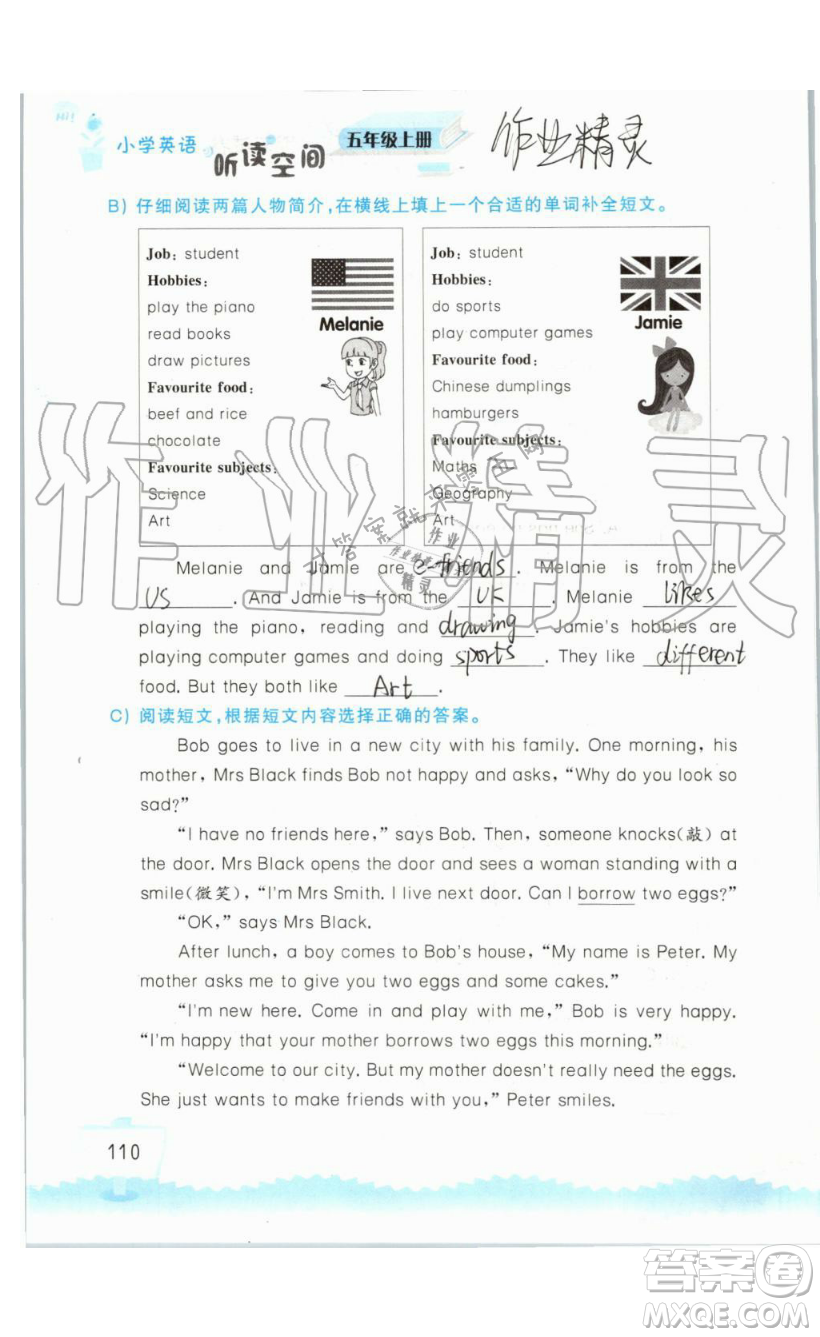 小学英语
听读空间
五年级上册
作业精灵
B) 仔细阅读两篇人物简介,在横线上填上一个合适的单词补全短文。
Job: student
Hobbies:
play the piano
read books
draw pictures
Favourite food:
beef and rice
chocolate
Favourite subjects:
Science
Art
Melanie
Job: student
Hobbies:
do sports
play computer games
Favourite food:
Chinese dumplings
hamburgers
Favourite subjects:
Maths
Geography
Art
Jamie
Melanie and Jamie are e-friends. Melanie is from the
US. And Jamie is from the UK. Melanie likes
playing the piano, reading and drawing. Jamie's hobbies are
playing computer games and doing sports. They like different
food. But they both like Art.
C) 阅读短文,根据短文内容选择正确的答案。
Bob goes to live in a new city with his family. One morning, his
mother, Mrs Black finds Bob not happy and asks, “Why do you look so
sad?”
“I have no friends here,” says Bob. Then, someone knocks(敲) at
the door. Mrs Black opens the door and sees a woman standing with a
smile(微笑), “I'm Mrs Smith. I live next door. Can I borrow two eggs?”
“OK,” says Mrs Black.
After lunch, a boy comes to Bob's house, “My name is Peter. My
mother asks me to give you two eggs and some cakes.”
“I'm new here. Come in and play with me,” Bob is very happy.
“I'm happy that your mother borrows two eggs this morning.”
“Welcome to our city. But my mother doesn't really need the eggs.
She just wants to make friends with you,” Peter smiles.
110
作业精灵
答案卷
MXQE.COM